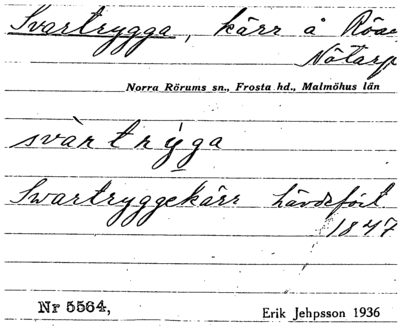 Svartrygga, kärr å Röa
Nötarp
Norra Rörums sn., Frosta hd., Malmöhus län
svàrtrýga
Swartryggekärr hävdefört.
1847
Nr 5564,
Erik Jehpsson 1936